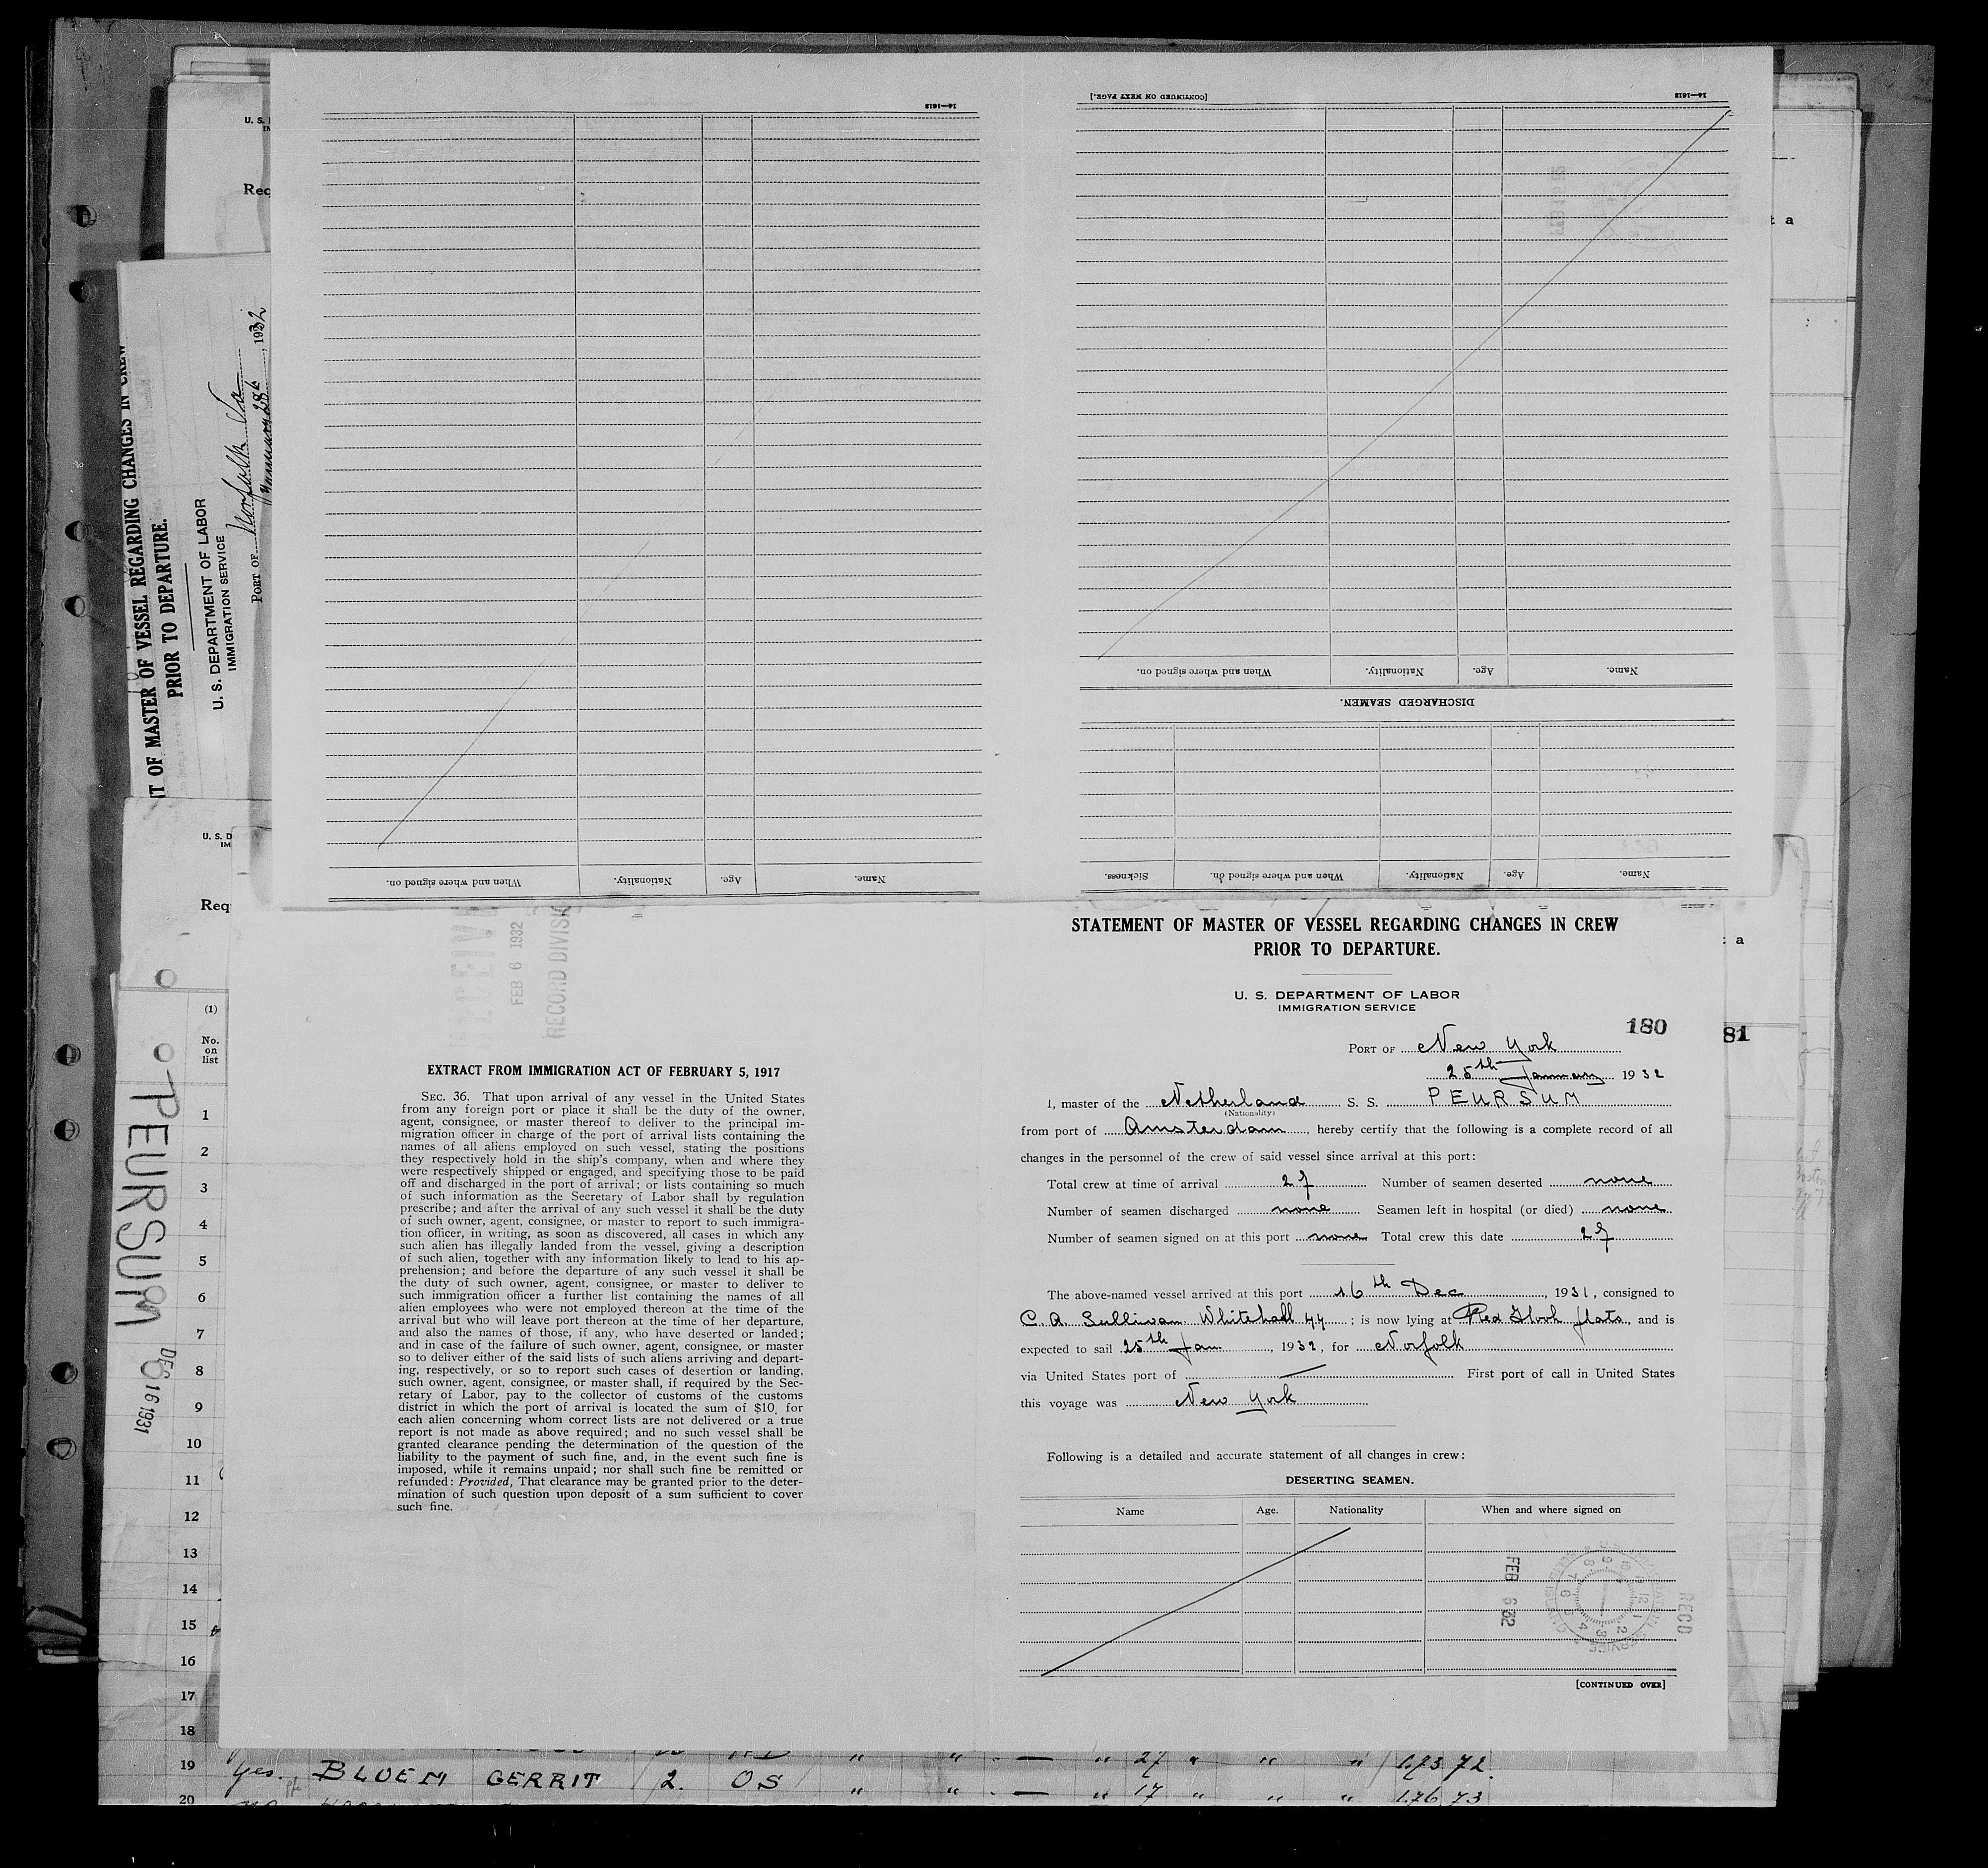 14—1618
[CONTINUED ON NEXT PAGE.]
14—1618
When and where signed on.
Nationality.
Age.
Name.
DISCHARGED SEAMEN.
When and where signed on.
Nationality.
Age.
Name.
Sickness.
When and where signed on.
Nationality.
Age.
Name.
T OF MASTER OF VESSEL REGARDING CHANGES IN CREW
PRIOR TO DEPARTURE.
U. S. DEPARTMENT OF LABOR
IMMIGRATION SERVICE
PORT OF Norfolk Va
January 28th, 1932
Req
FEB 6 1932
RECORD DIVISI
EXTRACT FROM IMMIGRATION ACT OF FEBRUARY 5, 1917
SEC. 36. That upon arrival of any vessel in the United States
from any foreign port or place it shall be the duty of the owner,
agent, consignee, or master thereof to deliver to the principal im-
migration officer in charge of the port of arrival lists containing the
names of all aliens employed on such vessel, stating the positions
they respectively hold in the ship's company, when and where they
were respectively shipped or engaged, and specifying those to be paid
off and discharged in the port of arrival; or lists containing so much
of such information as the Secretary of Labor shall by regulation
prescribe; and after the arrival of any such vessel it shall be the duty
of such owner, agent, consignee, or master to report to such immigra-
tion officer, in writing, as soon as discovered, all cases in which any
such alien has illegally landed from the vessel, giving a description
of such alien, together with any information likely to lead to his ap-
prehension; and before the departure of any such vessel it shall be
the duty of such owner, agent, consignee, or master to deliver to
such immigration officer a further list containing the names of all
alien employees who were not employed thereon at the time of the
arrival but who will leave port thereon at the time of her departure,
and also the names of those, if any, who have deserted or landed;
and in case of the failure of such owner, agent, consignee, or master
so to deliver either of the said lists of such aliens arriving and depart-
ing, respectively, or so to report such cases of desertion or landing,
such owner, agent, consignee, or master shall, if required by the Sec-
retary of Labor, pay to the collector of customs of the customs
district in which the port of arrival is located the sum of $10 for
each alien concerning whom correct lists are not delivered or a true
report is not made as above required; and no such vessel shall be
granted clearance pending the determination of the question of the
liability to the payment of such fine, and, in the event such fine is
imposed, while it remains unpaid; nor shall such fine be remitted or
refunded: Provided, That clearance may be granted prior to the deter-
mination of such question upon deposit of a sum sufficient to cover
such fine.
STATEMENT OF MASTER OF VESSEL REGARDING CHANGES IN CREW
PRIOR TO DEPARTURE.
U. S. DEPARTMENT OF LABOR
IMMIGRATION SERVICE
180
81
PORT OF New York
25th January 1932
I, master of the Netherland S. S. PEURSUM
(Nationality)
from port of Amsterdam, hereby certify that the following is a complete record of all
changes in the personnel of the crew of said vessel since arrival at this port:
Total crew at time of arrival 27 Number of seamen deserted none
Number of seamen discharged none Seamen left in hospital (or died) none
Number of seamen signed on at this port none Total crew this date 27
The above-named vessel arrived at this port 16th Dec, 1931, consigned to
C. A. Sullivan Whitehall 44; is now lying at Red Hook flats, and is
expected to sail 25th Jan, 1932, for Norfolk
via United States port of — First port of call in United States
this voyage was New York
Following is a detailed and accurate statement of all changes in crew:
DESERTING SEAMEN.
Name Age. Nationality When and where signed on
FEB 6 32
RECD
[CONTINUED OVER]
(1)
No.
on
list
PEURSUM
DEC 16 1931
1
2
3
4
5
6
7
8
9
10
11
12
13
14
15
16
17
18
19 yes. BLOEM GERRIT 2. OS " " - — " 27 " " " 173 72.
20 " " - — " 17 " " " 176 73